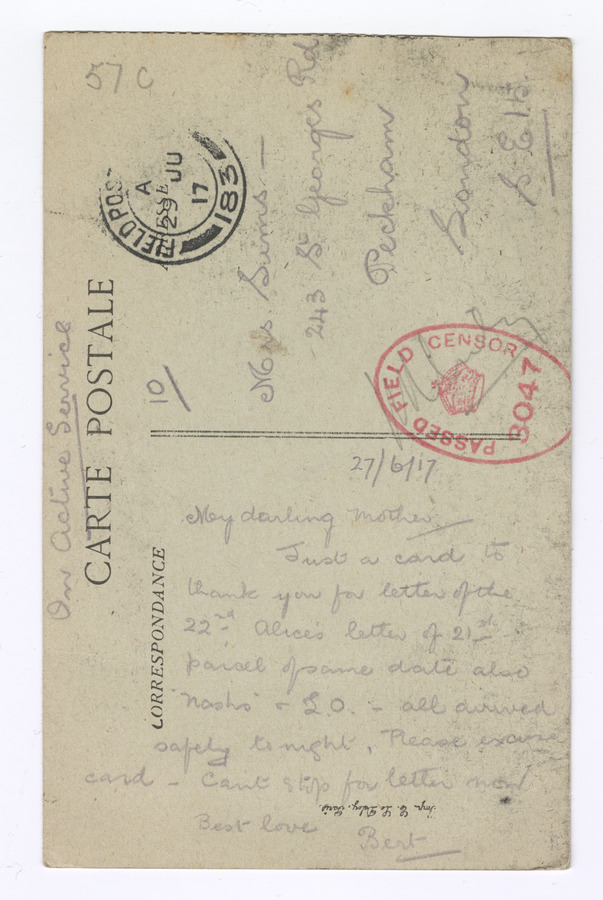 57 C
On Active Service
CARTE POSTALE
FIELD POS
A
29 JU
17
183
10/
Mrs Sims -
243 St Georges Rd
Peckham
London
S.E 15.
PASSED FIELD CENSOR
3047
CORRESPONDANCE
27/6/17
My darling Mother
Just a card to
thank you for letter of the
22nd Alice's letter of 21st
parcel of same date also
"Nashs" & L.O. - all arrived
safely tonight. Please excuse
card - Cant stop for letter now
Best love
Bert
Imp. Paris